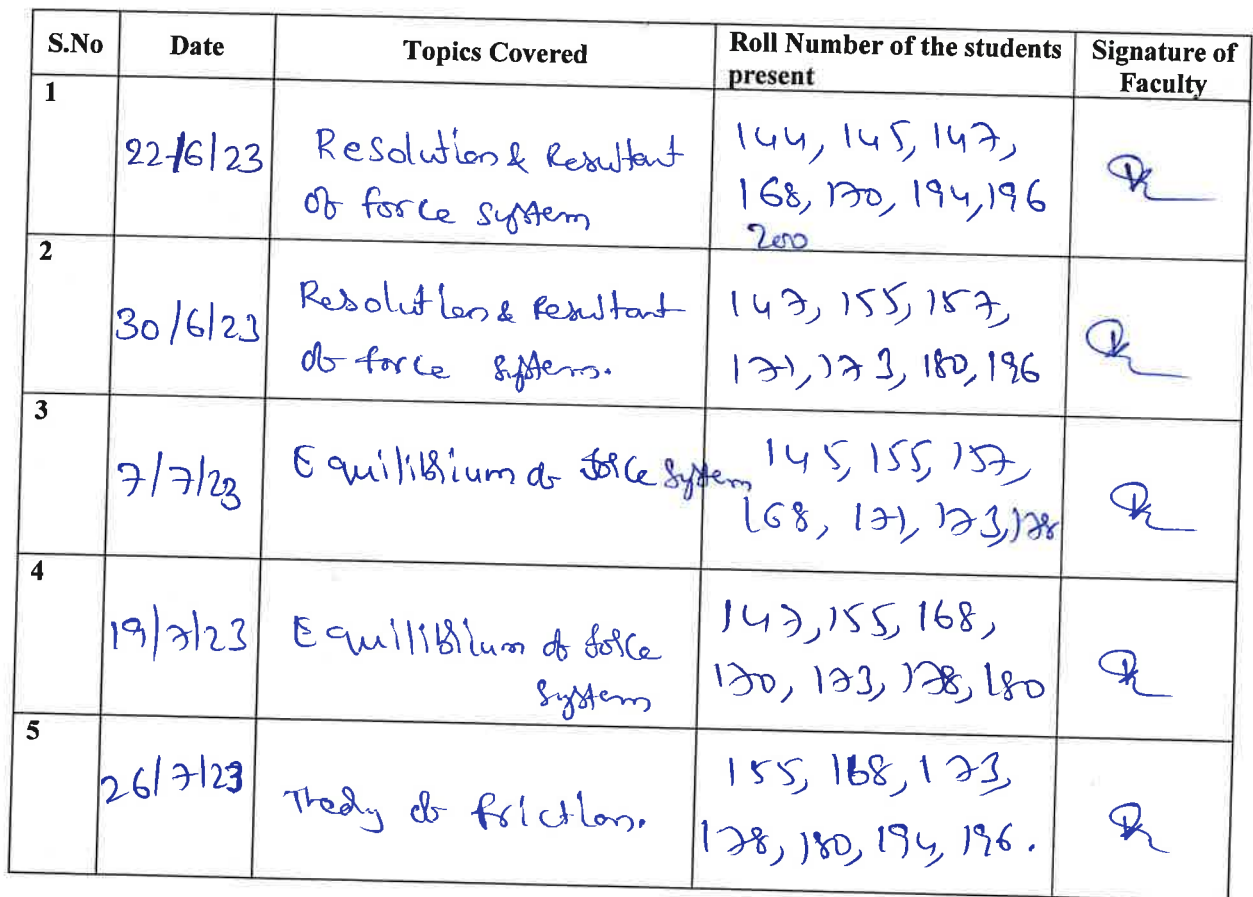 S.No Date Topics Covered Roll Number of the students present Signature of Faculty
1 22/6/23 Resolution & Resultant 144, 145, 147,
of force system 168, 170, 194, 196
200
2 30/6/23 Resolution & Resultant 147, 155, 157,
of force system. 171, 173, 180, 196
3 7/7/23 Equilibrium of force system 145, 155, 157,
168, 171, 173, 178
4 19/7/23 Equilibrium of force 147, 155, 168,
system 170, 173, 178, 180
5 26/7/23 Theory of friction. 155, 168, 173,
178, 180, 194, 196.